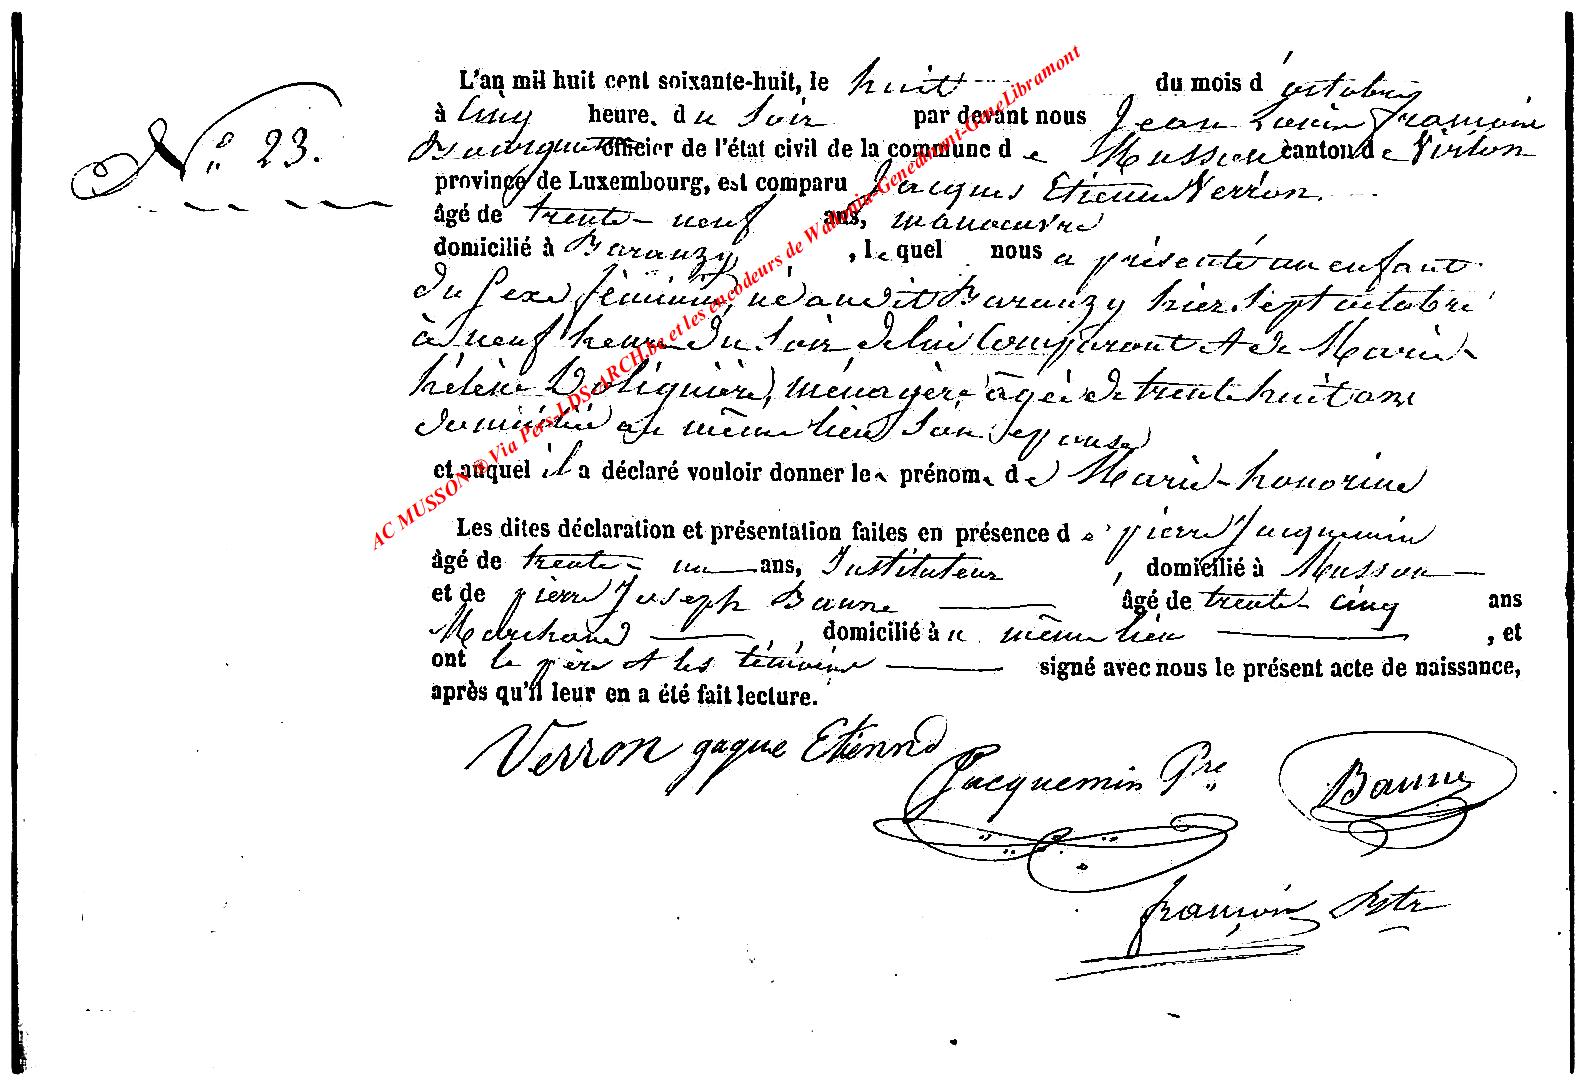 N° 23.
L'an mil huit cent soixante-huit, le huit du mois d'octobre
à cinq heure. du soir par devant nous Jean François
officier de l'état civil de la commune de Musson canton de Virton
province de Luxembourg, est comparu Jacques Etienne Verron
âgé de trente-neuf ans, manoeuvre
domicilié à Baranzy, lequel nous a présenté un enfant
du sexe féminin, né audit Baranzy hier sept octobre
à neuf heure du soir, de lui comparant et de Marie-
hélène, ménagère, âgée de trente huit ans
domiciliée au même lieu son épouse
et auquel il a déclaré vouloir donner les prénoms de Marie-honorine
Les dites déclaration et présentation faites en présence de pierre Jacquemin
âgé de trente-un ans, Instituteur, domicilié à Musson
et de pierre Joseph Baune âgé de trente-cinq ans
Marchand, domicilié au même lieu, et
ont le père et les témoins signé avec nous le présent acte de naissance,
après qu'il leur en a été fait lecture.
Verron gaque Etienne
Jacquemin Pre
Baune
françois
AC MUSSON ® Via Pers-LDS-ARCH.be et les encodeurs de Wallonia-Genedinant-GeneLibramont